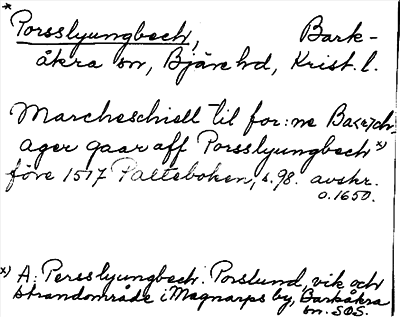 *
Porsslyungbech, Bark-
åkra sn, Bjäre hd, Krist. l.
Marcheschiell til for:ne Ba<r>ch-
ager gaar aff Porsslyungbech x)
före 1517 Palteboken, s. 98. avskr.
o. 1650.
x) A: Persslyungbech. Porslund, vik och
strandområde i Magnarps by, Barkåkra
sn. SOS.